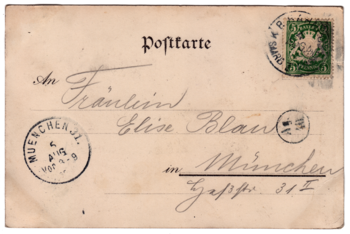 Postkarte
An
Fräulein
Elise Blau
in München
Heßstr 31 I
MUENCHEN 31.
5
AUG
VOR 8-9